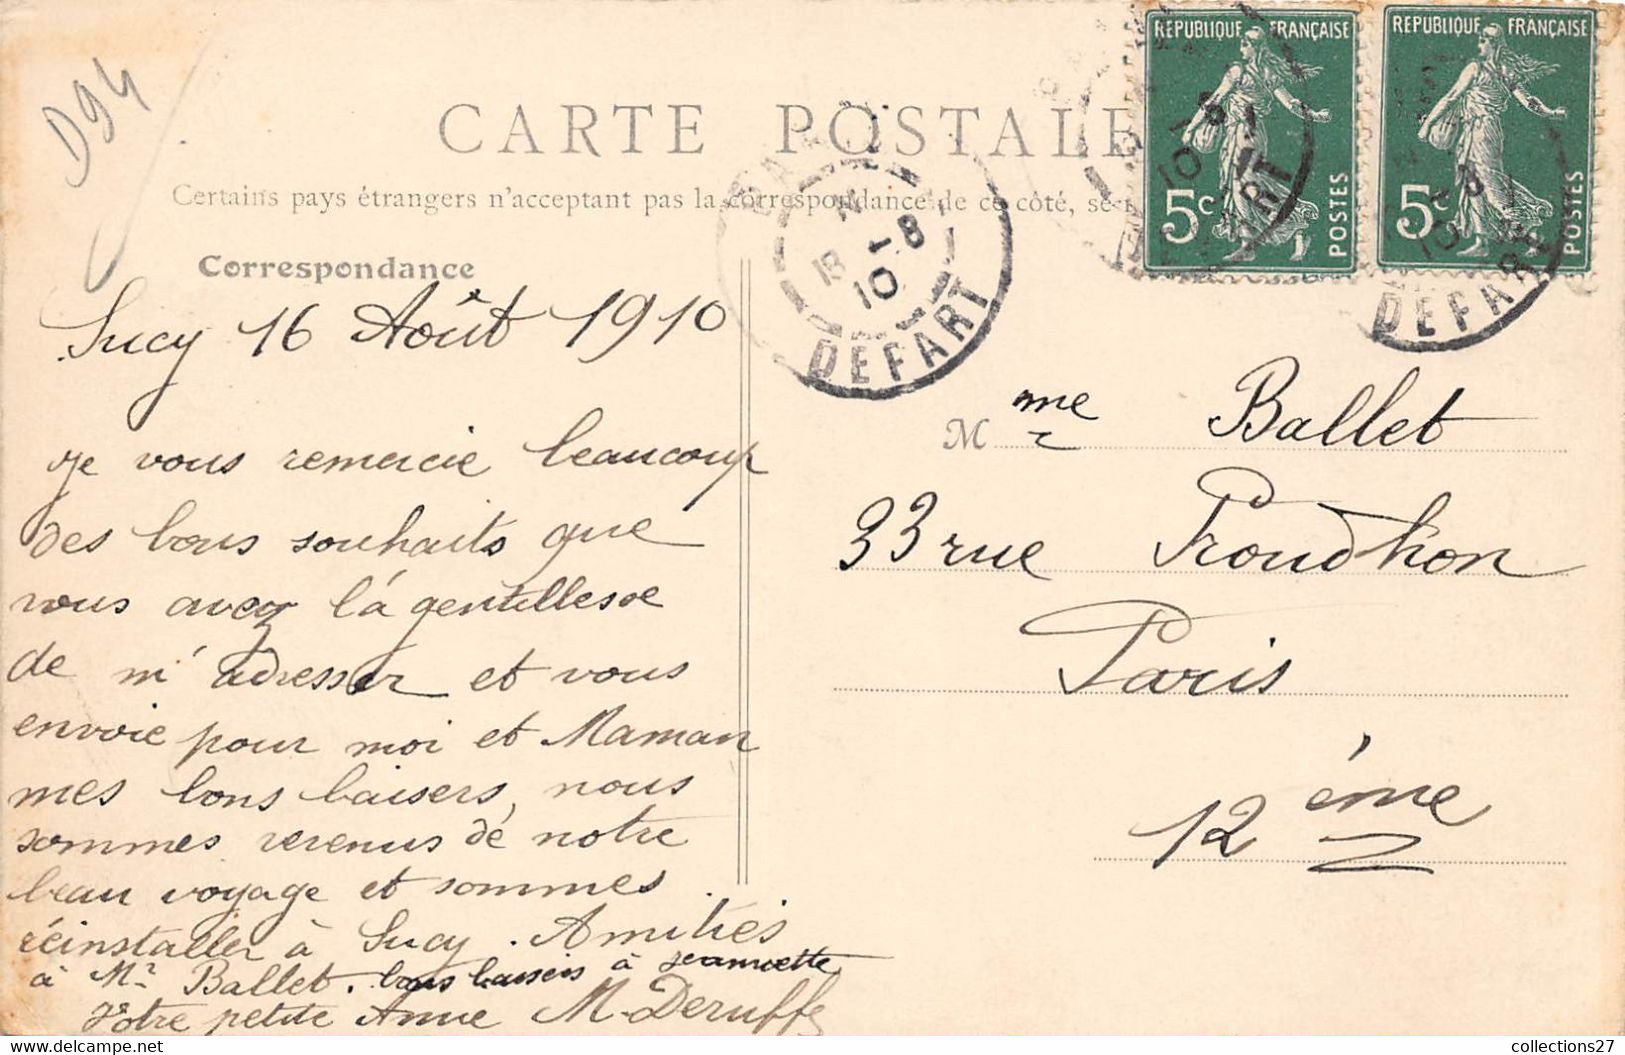 D94
CARTE POSTALE
Certains pays étrangers n'acceptant pas la correspondance de ce côté, se
Correspondance
REPUBLIQUE FRANÇAISE
5c
POSTES
REPUBLIQUE FRANÇAISE
5c
POSTES
18 -8
10
DEPART
10 -8
DEPART
Sucy 16 Août 1910
Je vous remercie beaucoup
des bons souhaits que
vous avez la gentillesse
de m'adresser et vous
envoie pour moi et Maman
mes bons baisers, nous
sommes revenus de notre
beau voyage et sommes
réinstaller à Sucy. Amitiés
à Mr Ballet. bons baisers à Jeannette
Votre petite Anne M. Deruffe
Mme Ballet
33 rue Proudhon
Paris
12 ème
collections27